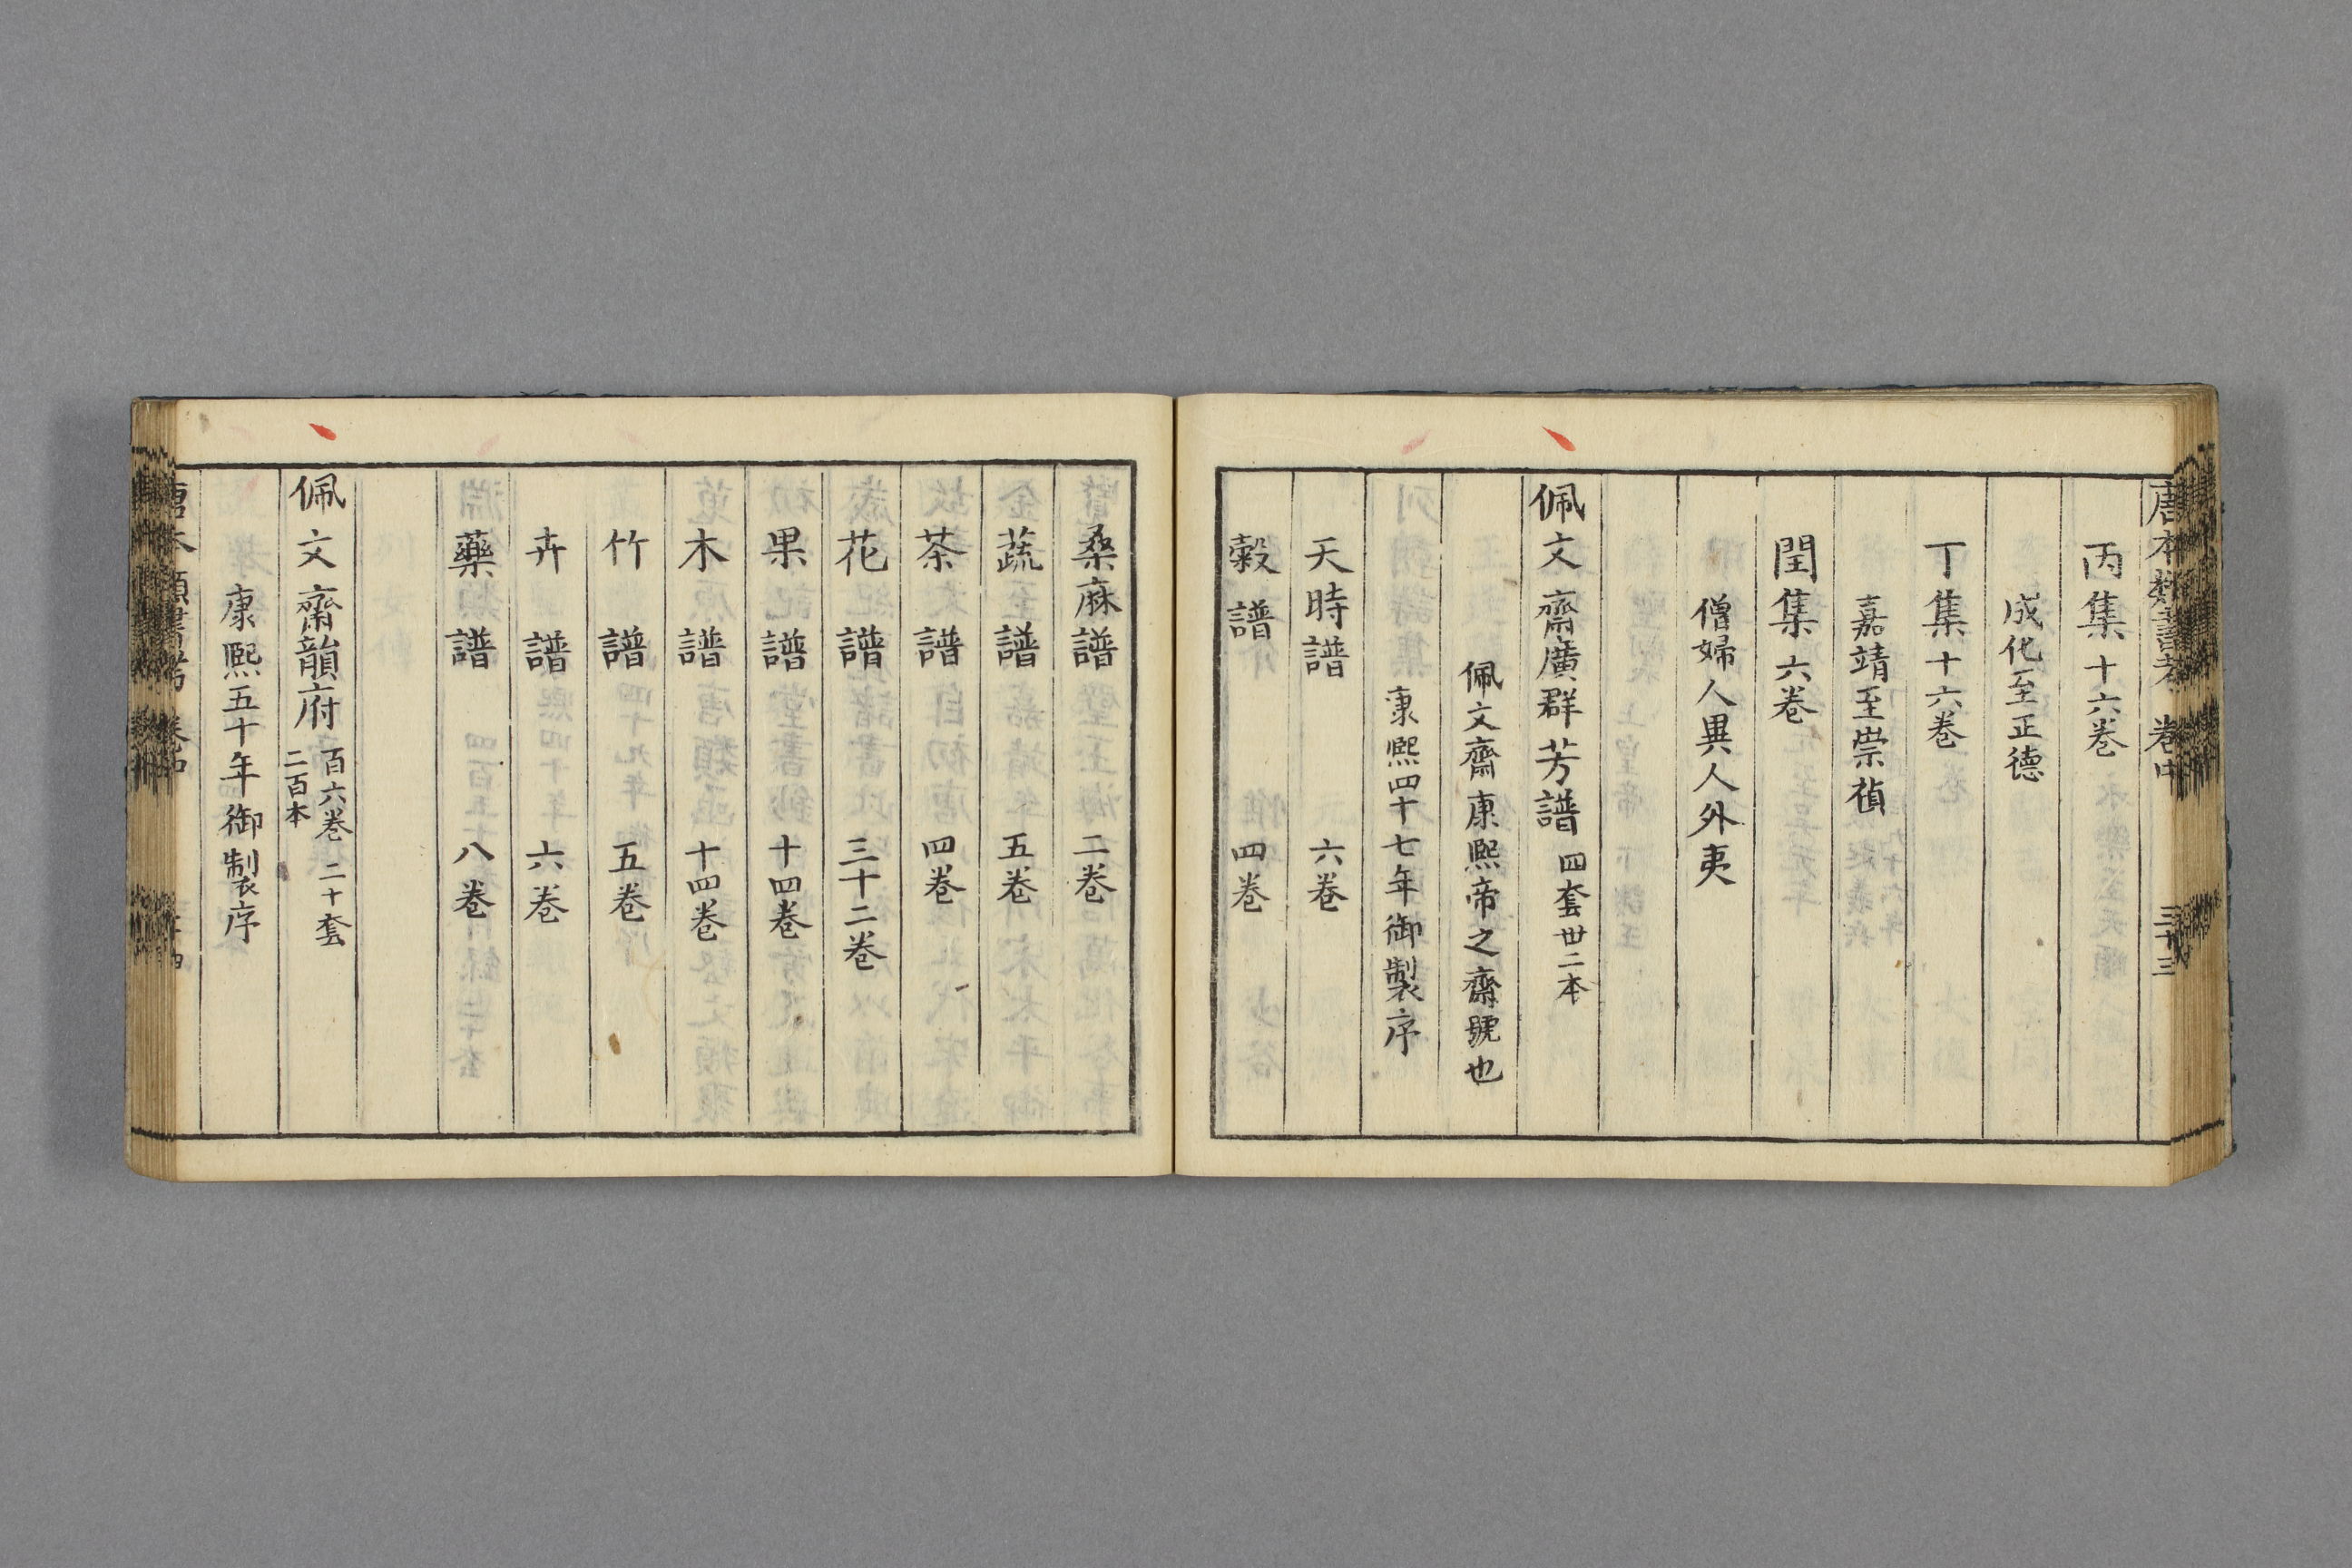 唐本類書考 卷中 三十三
丙集十六巻
成化至正德
丁集十六巻
嘉靖至崇禎
閏集六巻
僧婦人異人外夷
佩文齋廣群芳譜 四套 卅二本
佩文齋康熙帝之齋號也
康熙四十七年御製序
天時譜 六巻
穀譜 四巻
桑麻譜 二巻
蔬譜 五巻
茶譜 四巻
花譜 三十二巻
果譜 十四巻
木譜 十四巻
竹譜 五巻
卉譜 六巻
藥譜 八巻
佩文齋韻府 百六巻 二十套
二百本
康熙五十年御製序
唐本類書考 卷中